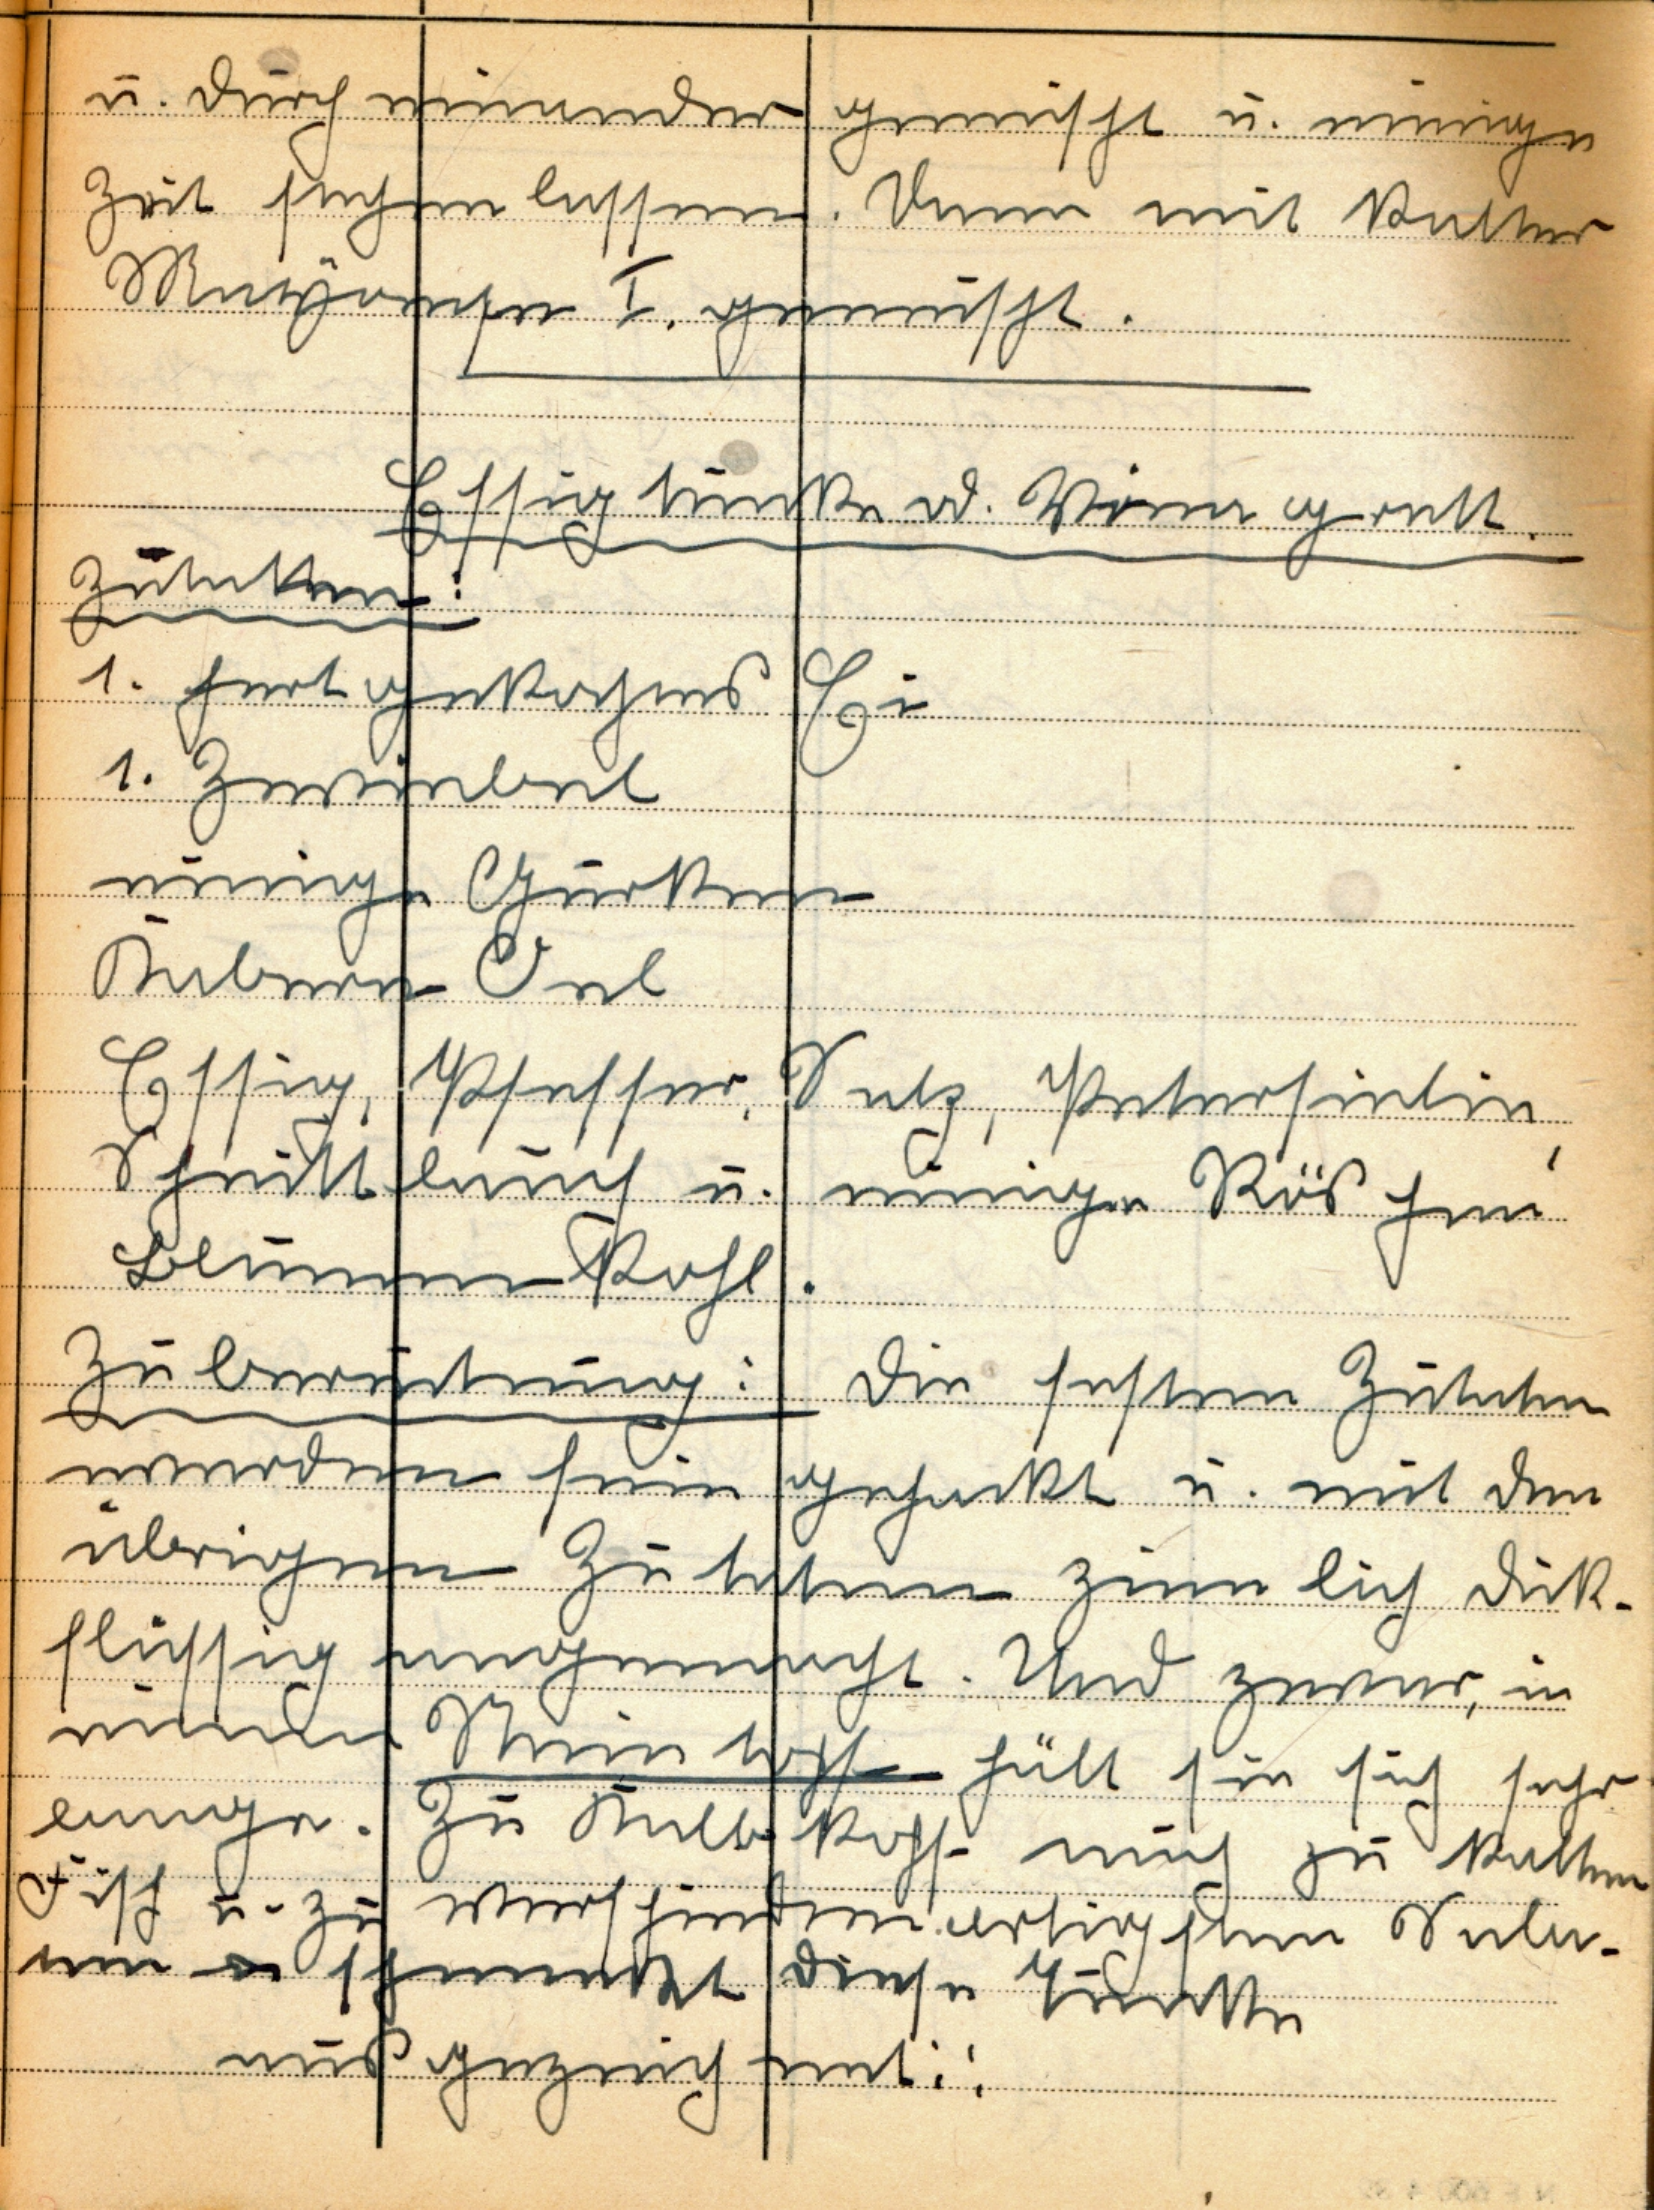 u. durch einander gemischt u. einige
Zeit stehen lassen. Dann mit kalter
Mayonese I. gemischt.
Essigtunke od. Vinegrett.
Zutatten:
1. hart gekochtes Ei
1. Zwiebel
einige Gurken
Kabern Oel
Essig, Pfeffer, Salz, Petersielie,
Schnittlauch u. einige Röschen
Blumenkohl.
Zubereitung: Die festen Zutaten
werden fein gehackt u. mit den
übrigen Zutaten ziemlich dick-
flüssig angemacht. Und zwar, in
einem Steintopf hält sie sich sehr
lange. Zu Kalbskopf auch zu kaltem
Fisch u. zu verschiedenartigsten Sala-
ten schmeckt diese Tunke
ausgezeichnet!!